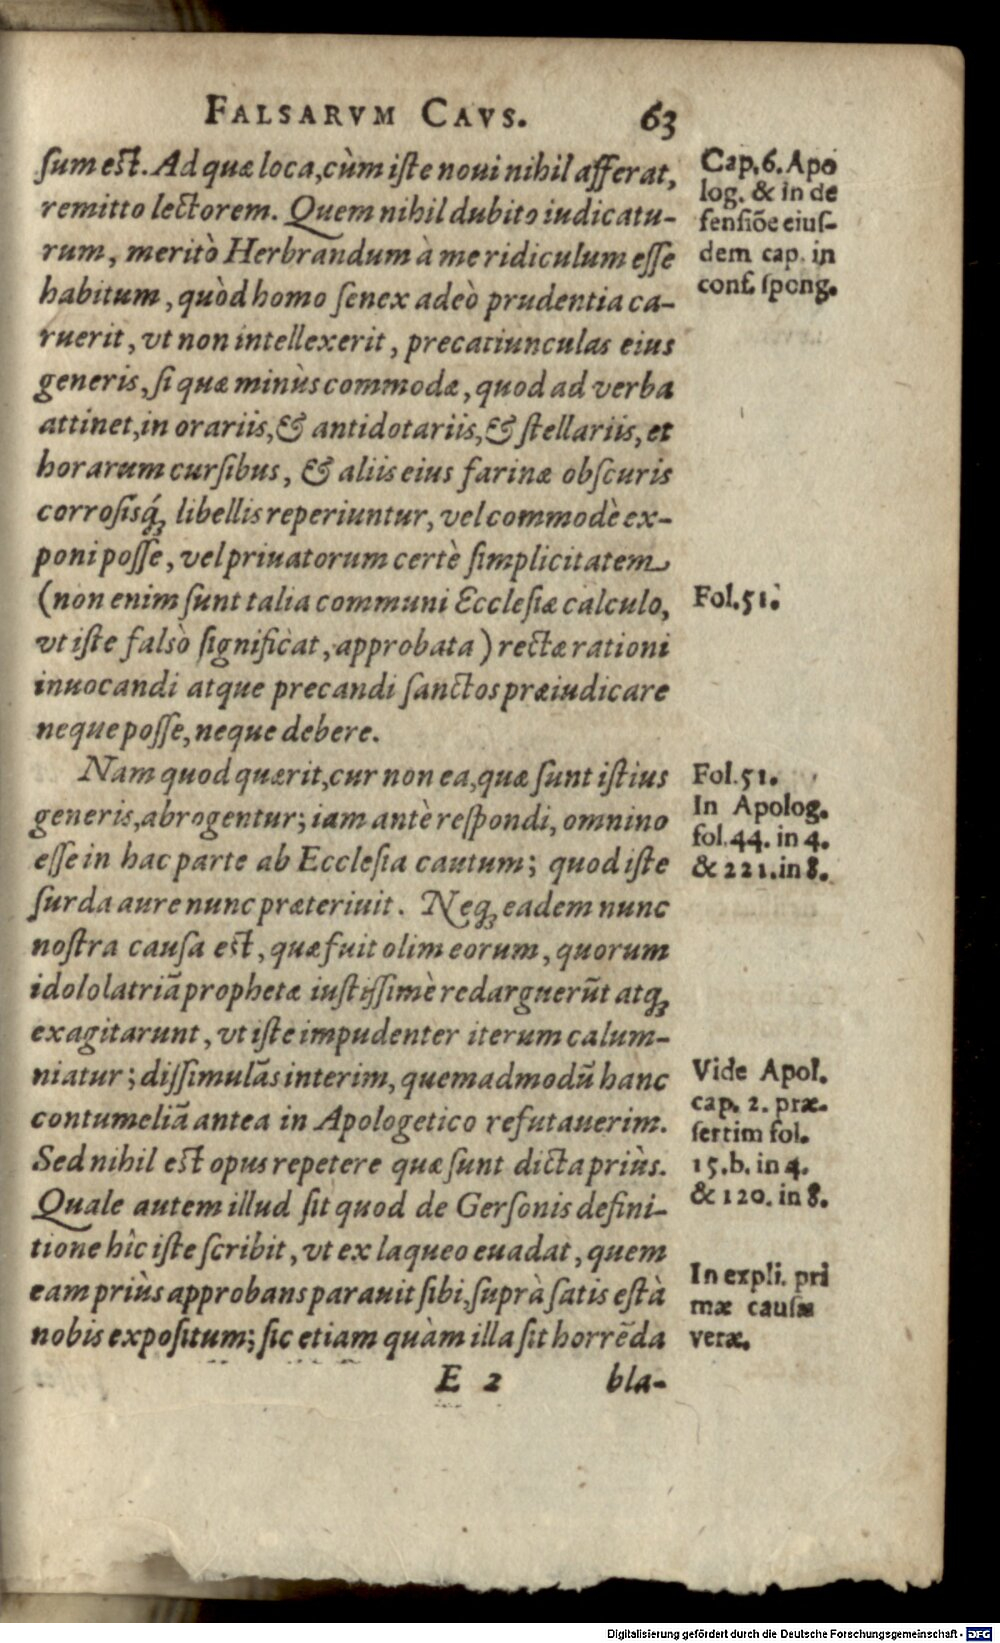 FALSARVM CAVS. 63
ſum eſt. Ad quæ loca, cùm iſte noui nihil afferat,
remitto lectorem. Quem nihil dubito iudicatu-
rum, meritò Herbrandum à me ridiculum eſſe
habitum, quòd homo ſenex adeò prudentia ca-
ruerit, vt non intellexerit, precatiunculas eius
generis, ſi quæ minùs commodæ, quod ad verba
attinet, in orariis, & antidotariis, & ſtellariis, et
horarum curſibus, & aliis eius farinæ obſcuris
corroſisq́ꝫ libellis reperiuntur, vel commodè ex-
poni poſſe, vel priuatorum certè ſimplicitatem
(non enim ſunt talia communi Eccleſiæ calculo,
vt iſte falsò ſignificat, approbata) rectæ rationi
inuocandi atque precandi ſanctos præiudicare
neque poſſe, neque debere.
Nam quod quærit, cur non ea, quæ ſunt iſtius
generis, abrogentur; iam antè reſpondi, omnino
eſſe in hac parte ab Eccleſia cautum; quod iſte
ſurda aure nunc præteriuit. Neqꝫ eadem nunc
noſtra cauſa eſt, quæ fuit olim eorum, quorum
idololatriā prophetæ iuſtiſſimè redarguerūt atqꝫ
exagitarunt, vt iſte impudenter iterum calum-
niatur; diſſimulās interim, quemadmodū hanc
contumeliā antea in Apologetico refutauerim.
Sed nihil eſt opus repetere quæ ſunt dicta priùs.
Quale autem illud ſit quod de Gerſonis defini-
tione hîc iſte ſcribit, vt ex laqueo euadat, quem
eam priùs approbans parauit ſibi, ſuprà ſatis eſt à
nobis expoſitum; ſic etiam quàm illa ſit horrēda
E 2 bla-
Cap. 6. Apo
log. & in de
fenſiōe eiuſ-
dem cap. in
conf. ſpong.
Fol. 51.
Fol. 51.
In Apolog.
fol. 44. in 4.
& 221. in 8.
Vide Apol.
cap. 2. præ-
ſertim fol.
15. b. in 4.
& 120. in 8.
In expli. pri
mæ cauſæ
veræ.
Digitalisierung gefördert durch die Deutsche Forschungsgemeinschaft - DFG